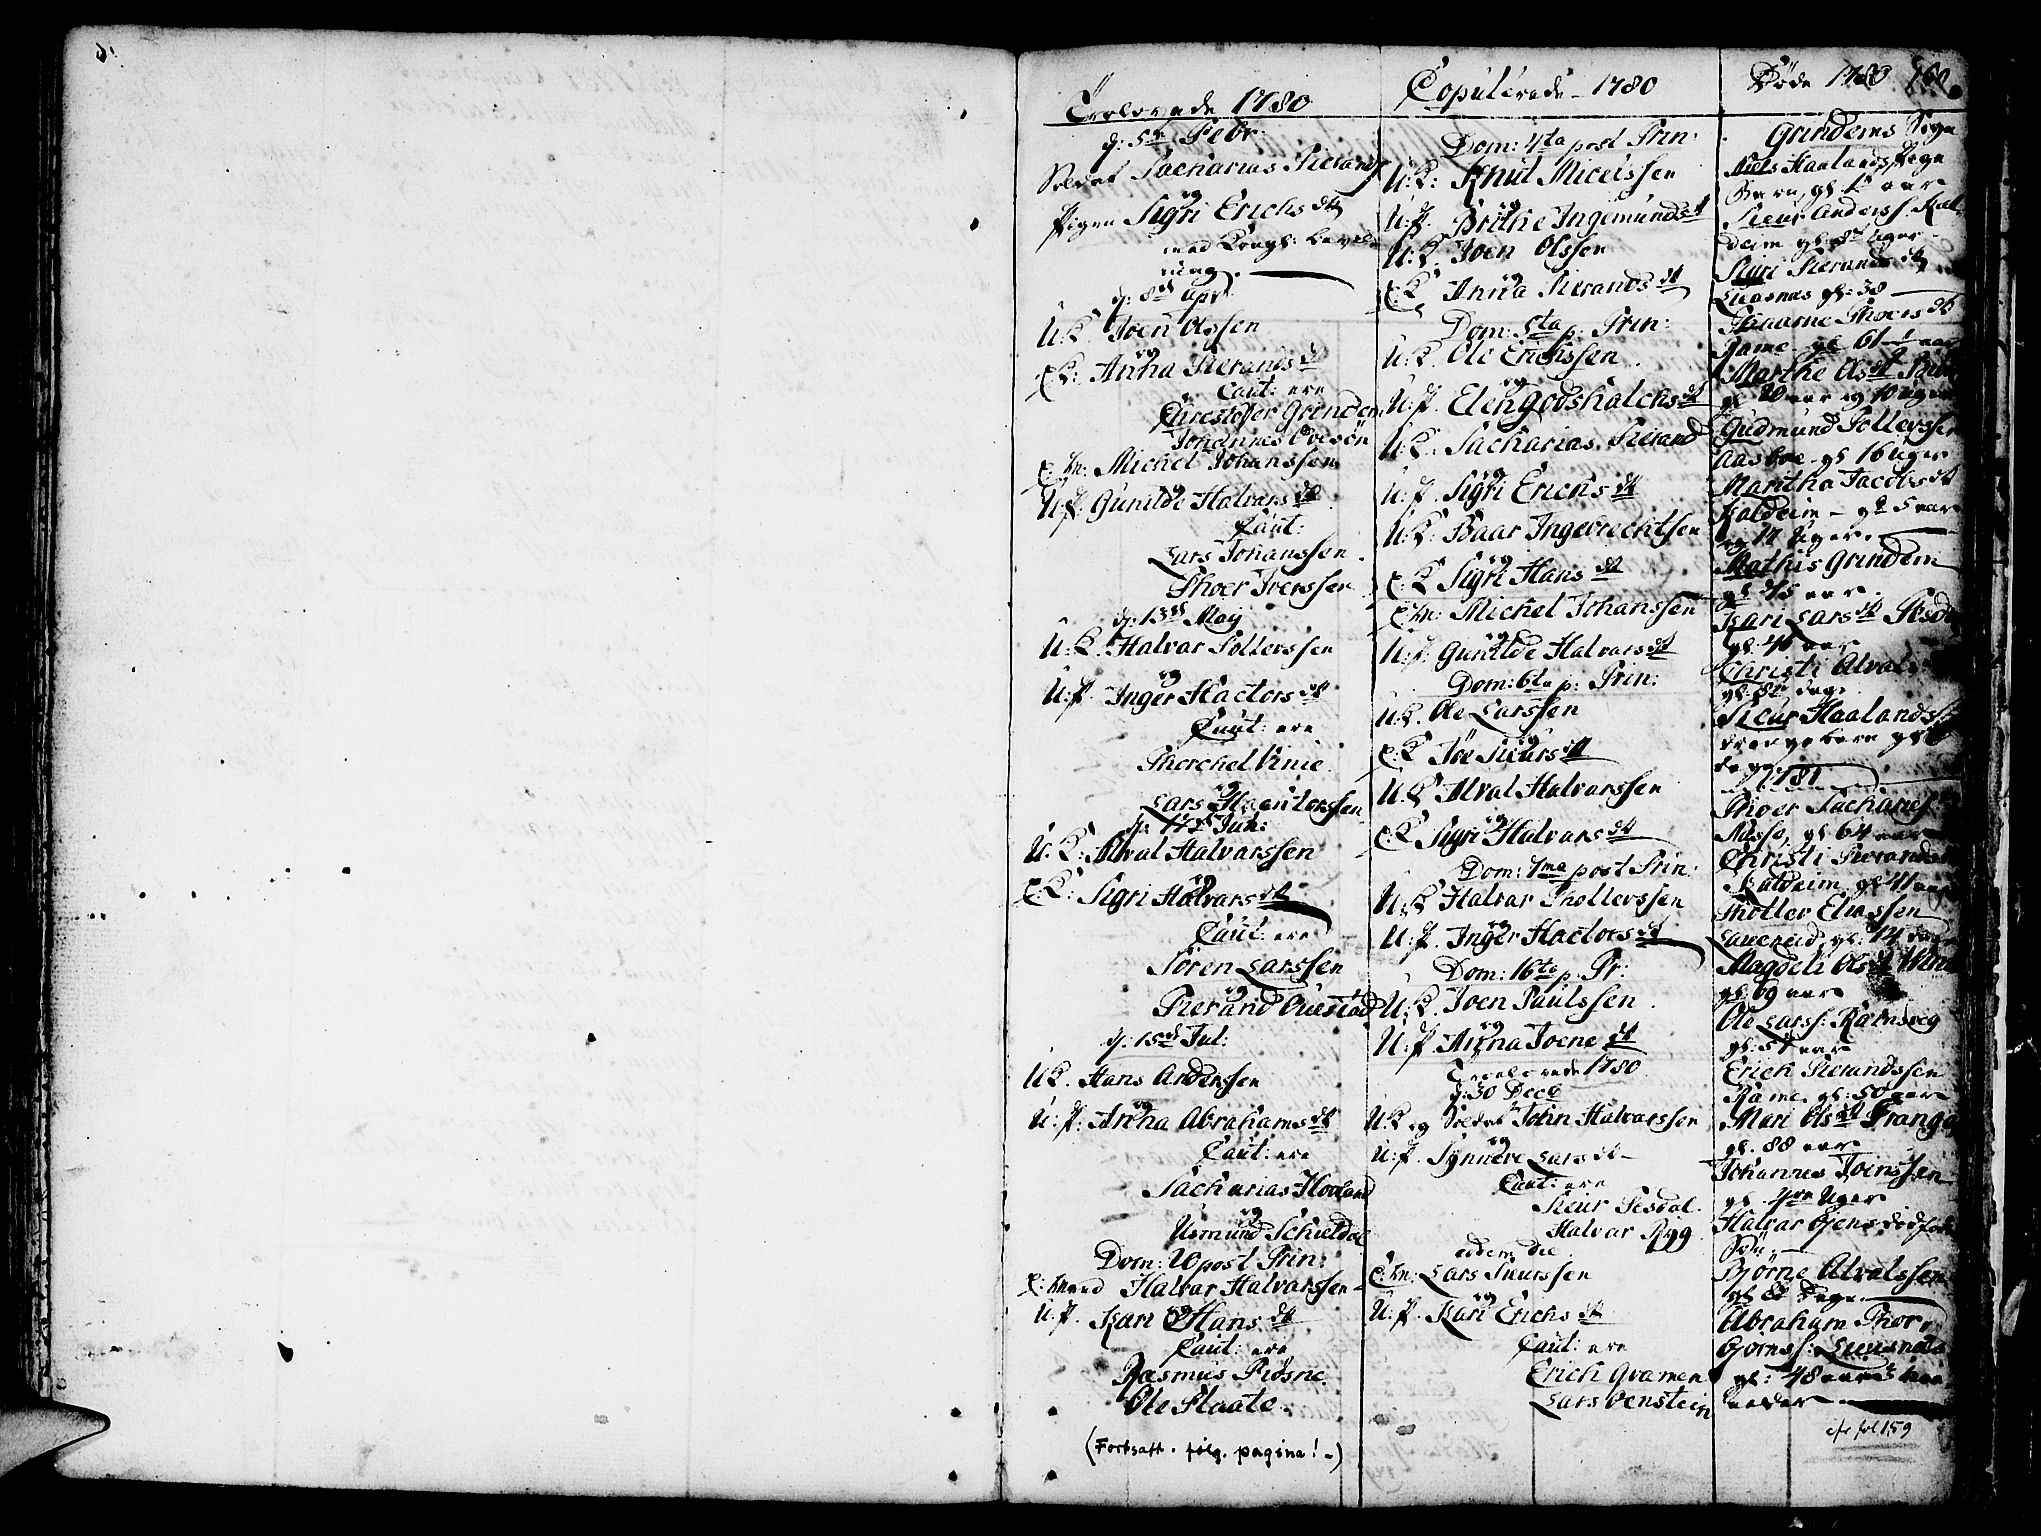 Trolovede 1780
d: 5te Febr:
Soldat Sacharias Sierands
og
Pigen Sigri Erichs dtr
med Kongl: bevil
ning.
d: 8de Apr:
U:K. Joen Olssen
og
E:K: Anna Sierands dtr
Caut: ere
Christofer Grindem
Johannes Ovesøn
E:M: Michel Johanssen
og
U:P. Gunilde Halvars dtr
Caut:
Lars Johanssen
Thoer Joenssen
d: 13de Maij
U:K. Halvar Tollevssen
og
U:P. Inger Hactors dtr
Caut: ere
Thorchel Vinie
og
Lars Hacntorssen
d: 17de Jun:
U:K: Alval Halvarssen
og
E:K: Sigri Halvars dtr
Caut: ere
Søren Larssen
og
Sierand Øuestad
d: 15de Jul:
U:K. Hans Anderssen
og
U:P: Anna Abrahams dtr
Caut: ere
Sacharias Hovland
og
Usmund Schieldal
Dom: 20 post Trin:
E:Mand Halvar Halvarssen
og
U:P. Kari Hans dtr
Caut: ere
Rasmus Røsne
Ole Slaate
(Fortsatt. følg. pagina! -)
Copulerede - 1780
Dom: 4ta post Trin:
U:K: Knut Micelssen
og
U:P. Brithe Ingemunds dtr
U:K. Joen Olssen
og
E:K. Anna Sierands dtr
Dom: 5ta p: Trin:
U:K. Ole Erichssen
og
U:P. Elen Godshalchs dtr
U:K. Sacharias Sierand
og
U:P. Sigri Erichs dtr
U:K: Baar Ingebrechtsen
og
E:K Sigri Hans dtr
E:M: Michel Johanssen
og
U:P: Gunilde Halvars dtr
Dom: 6ta p: Trin:
U:K. Ole Larssen
og
E:K. Joe Siurs dtr
U:K Alval Halvarssen
og
E:K. Sigri Halvars dtr
Dom: 7me post Trin:
U:K Halvar Thollevssen
og
U:P. Inger Hactors dtr
Dom: 16ta p. Tr:
U:K. Joen Paulssen
og
U:P Anna Joens dtr
Trolovede 1780
d: 30 Decb
U:K og Soldat John Halvarssen
og
U:P. Synneve Lars dtr
Caut: ere
Sieur Sesdal.
Halvar Rygg
eodem die
E:M: Lars Siurssen
og
U:P. Kari Erichs dtr
Caut: ere
Erich Qvamen
Lars Oenstein
Døde 1780 160.
Grindems Sogn
Niels Haalands Pige
Barn, gl: 1/2 aar
Sieur Anderss. Kal
deim gl: 8te Uger
Sigri Sierands dtr
Lunsnæs gl: 38
Thoers dtr
Rame gl 61 aar
Marthe Ols dtr
gl 20 aar og 10 uger
Gudmund Tollevssen
Aasboe gl 16 Uger
Maritha Jacobs dtr
Kaldeim - gl 5 aar
og 14 Uger.
Mathis Grindem
gl 45 aar.
Kari Lars dtr Sesdal
gl: 41 aar
Christi Alvals
gl: 8te dage
Sieur Haalands
drenge barn gl 8
dage
1781
Thoer Sachariess
gl 64 aar
Christi Sierands
Kaldeim gl 41 aar
Thollev Eliassen
gl: 14 dage
Magdeli Ols dtr Vinie
gl: 69 aar
Ole Larss: Ramsvig
gl: 57 aar
Erich Sierandssen
Rame. gl: 50 aar
Mari Ols dtr Frange
gl: 88 aar
Johannes Joenssen
gl. 4re Uger
Halvar Øiens dødfød
Søn
Bjørne Alvalssen
gl 8 Dage.
Abraham Thor
bjornss: Lunsnæs
gl: 48 aar 3 maa
neder
cfr fol 159